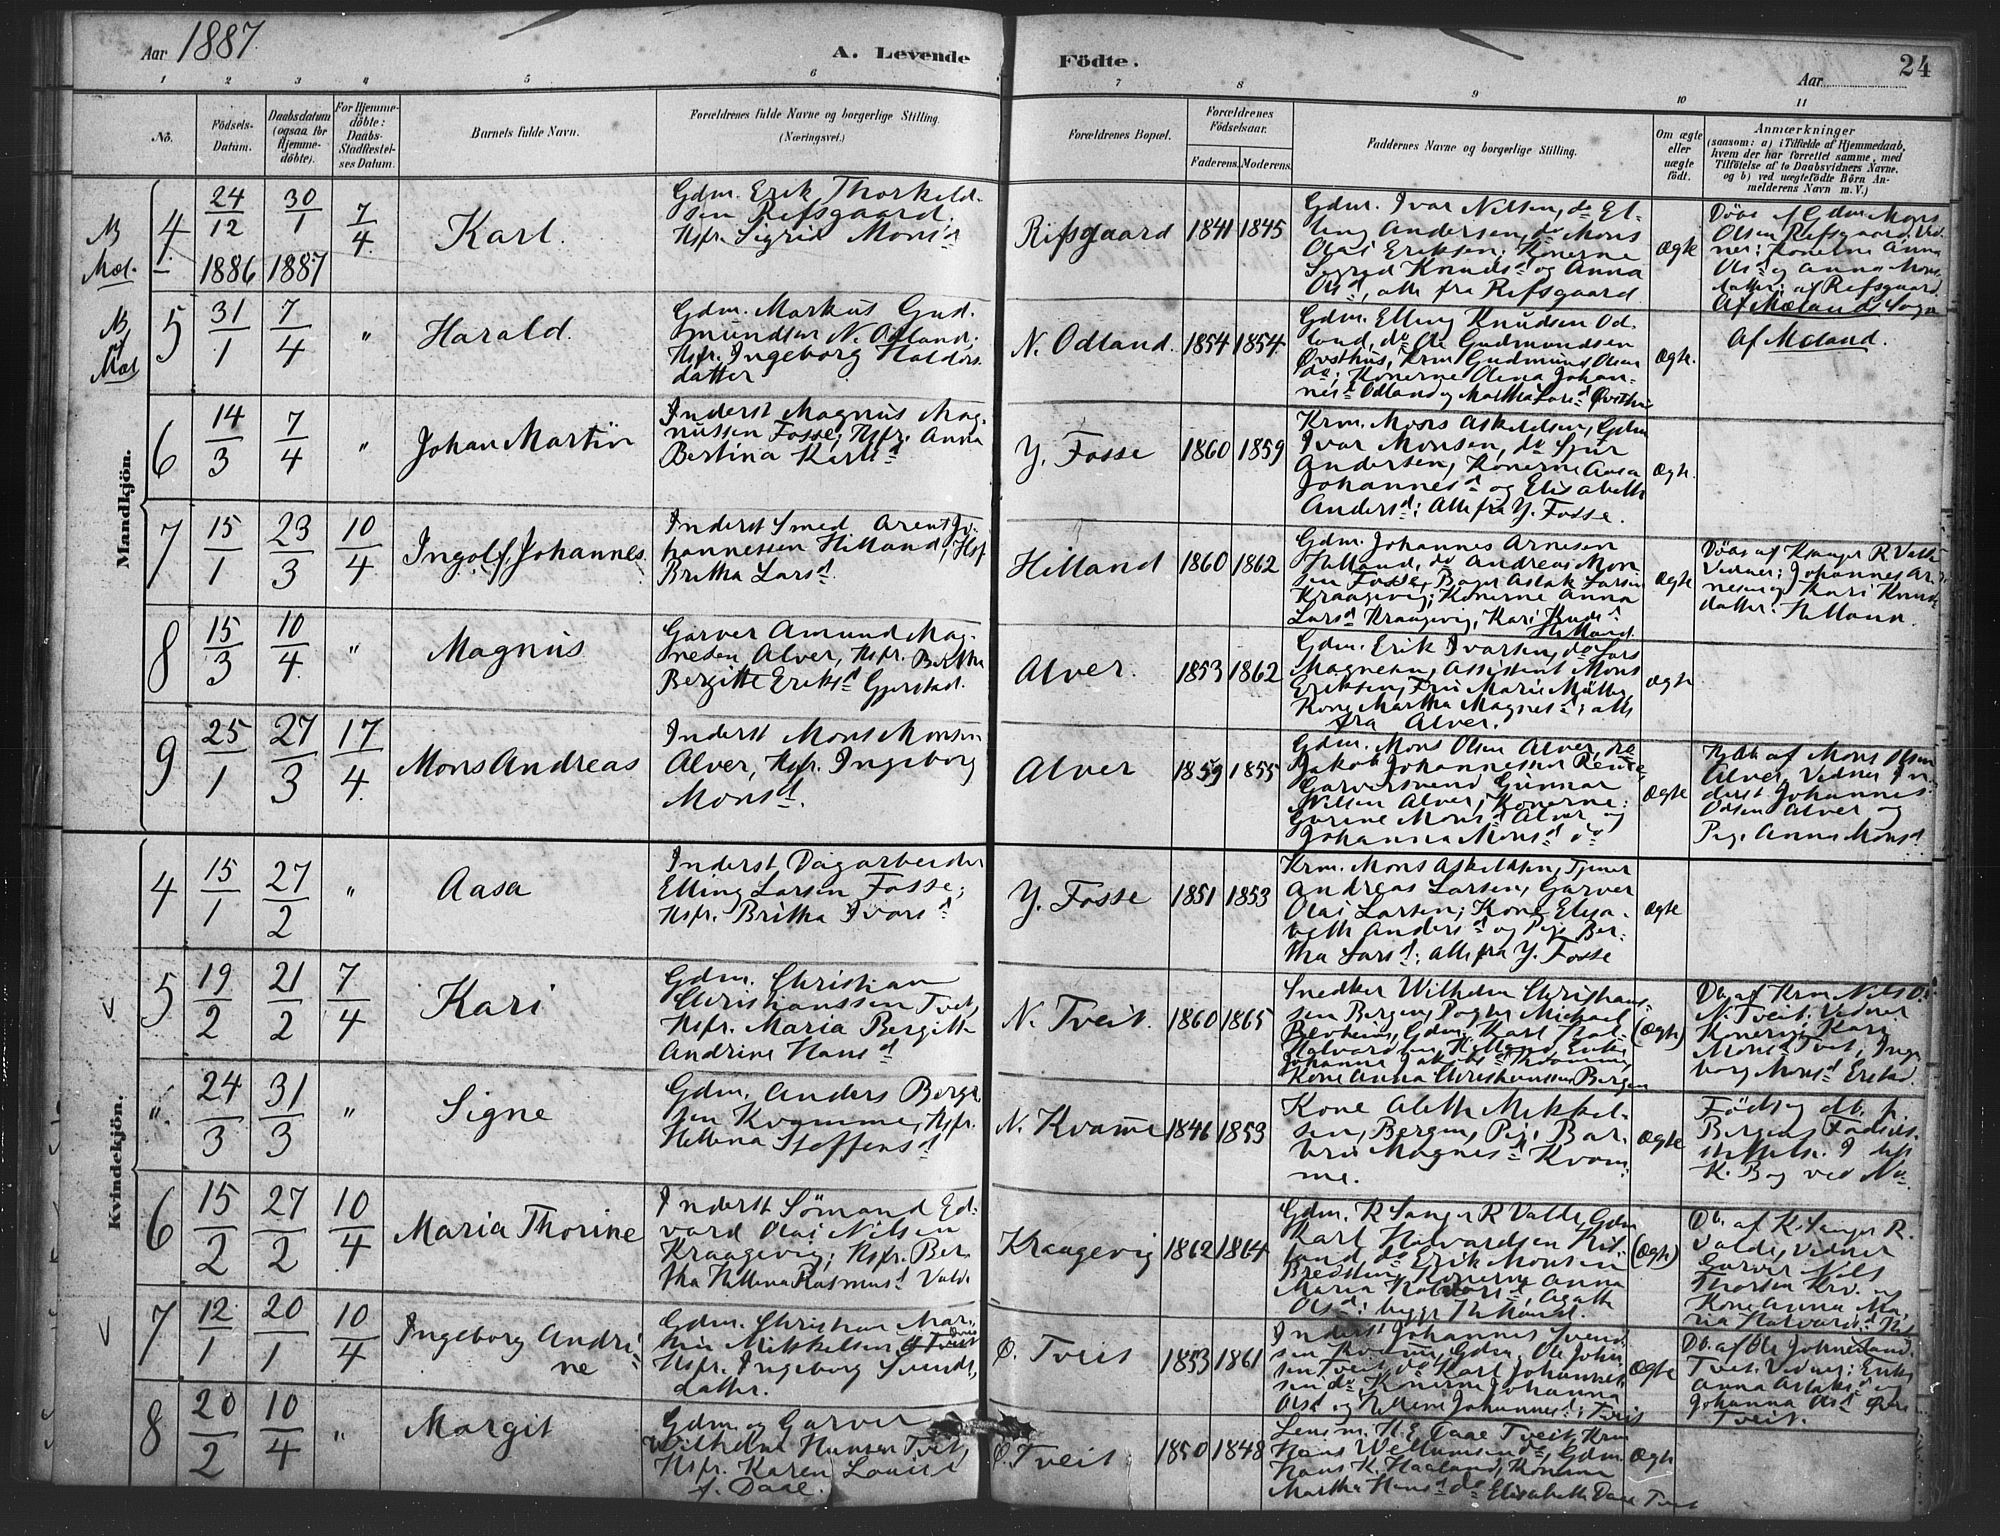 Aar 1887.
A. Levende Födte.
Aar
24
1 2 3 4 5 6 7 8 9 10 11
No.
Födsels-Datum.
Daabsdatum (ogsaa for Hjemmedöbte).
For Hjemmedöbte: Daabs-Stadfæstelses Datum.
Barnets fulde Navn.
Forældrenes fulde Navne og borgerlige Stilling. (Næringsvei.)
Forældrenes Bopæl.
Forældrenes Födselsaar.
Faderens. Moderens.
Faddernes Navne og borgerlige Stilling.
Om ægte eller uægte födt.
Anmærkninger
(saasom: a) i Tilfælde af Hjemmedaab,
hvem der har forrettet samme, med
Tilföielse af to Daabsvidners Navne.
og b) ved uægtefödte Börn An-
melderens Navn m. V.)
Mandkjön.
4
24/12 1886
30/1 1887
7/4
Karl.
Gdm. Erik Thorkeld-
sen Refsgaard.
Hsfr. Sigrid Monsd
Rifsgaard
1841
1845
Gdm. Ivar Nilsen, do El-
ling Andersen, do Mons
Olai Eriksen; Konerne
Sigrid Knudsd og Anna
Olsd, alle fra Refsgaard
ægte
Döbt af Gdm Mons
Olsen Refsgaard, Vid-
ner: Konerne Anna
Olsd og Anna Mons-
datter af Refsgaard.
Af Mælands Sogn
5
31/1
7/4
"
Harald.
Gdm. Markus Gud-
mundsen N. Odland.
Hsfr. Ingeborg Haldors-
datter
N. Odland.
1854
1854.
Gdm. Elling Knudsen Od-
land, do Ole Gudmundsen
Øvsthus, Krm Gudmund Olsen
do; Konerne Olina Johan-
nesd Odland og Martha Larsd Øvsthus
Ægte.
Af Meland.
6
14/3
7/4
"
Johan Martin
Inderst Magnus Mag-
nussen Fosse, Hsfr. Anna
Bertina Karlsd
Y. Fosse
1860
1859
Krm. Mons Askeldsen, Gdm
Ivar Monsen, do Sjur
Andersen, Konerne Aasa
Johannesd og Elisabeth
Andersd; Alle fra Y. Fosse.
ægte.
7
15/1
23/3
10/4
Ingolf Johannes
Inderst Smed Arent Jo-
hannessen Hilland, Hsf
Britha Larsd.
Hilland
1860
1862
Gdm. Johannes Arnesen
Hilland, do Andreas Mon-
sen Fosse, Bager Aslak Larsen
Kraagevig; Konerne Anna
Larsd Kraagevig, Kari Knudsd
Hilland.
ægte
Döbt af Kranger R Valde
Vidner: Johannes Ar-
nesen og Kari Knuds-
datter Hilland.
8
15/3
10/4.
"
Magnus
Garver Amund Mag-
nesen Alver, Hsfr. Bertha
Bergitte Eriksd Gjerstad.
Alver.
1853
1862
Gdm. Erik Ivarsen, do Lars
Magnesen, Assistent Mons
Eriksen, Frü Marie Müller,
Kone Martha Magnesd; alle
fra Alver.
ægte
9
25/1
27/3
17/4.
Mons Andreas
Inderst Mons Monsen
Alver, Hsfr. Ingeborg
Monsd.
Alver
1859
1855
Gdm. Mons Olsen Alver, do
Jakob Johannessen
Garversvend Gunnar
Nilsen Alver; Konerne:
Gurine Monsd Alver og
Johanna Monsd do
Ægte
Hjdöbt af Mons Olsen
Alver, Vidner In-
derst Johannes
Olsen Alver og
Pige Anna Monsd
Kvindekjön.
4
15/1
27/2
"
Aasa
Inderst Dagarbeider
Elling Larsen Fosse;
Hsfr. Britha Ivarsd
Y. Fosse
1851
1853
Krm. Mons Askeldsen, Tjener
Andreas Larsen, Garver
Olai Larsen; Kone Elisa-
beth Andersd og Pige Ber-
tha Larsd; alle fra Y. Fosse
Ægte
5
19/2
21/2
7/4
Kari
Gdm. Christian
Christianssen Tveit,
Hsfr. Maria Bergitte
Andrine Hansd
N. Tveit.
1860
1865
Snedker Wilhelm Christians-
sen Bergen, Michael
Gdm. Karl
Halvardsen Hilland, Enke
Johanna Jakobsd Kvamme,
Kone Anna Christianssen Bergen
(Ægte)
Db. af Krm Nils Ols
N. Tveit. Vidner
Konerne Kari
Monsd Tveit, Inge-
borg Monsd
"
24/3
31/3
"
Signe
Gdm. Anders Berge-
sen Kvamme, Hsfr.
Hellena Steffensd
N. Kvamme
1846
1853
Kone Aleth Mikkel-
sen, Bergen, Pige Bar-
bru Magnesd Kvam-
me.
Ægte
Födt og db. p.
Bergens Födsels-
stiftelse.
6
15/2
27/2
10/4
Maria Thorine
Inderst Sömand Ed-
vard Olai Nilsen
Kraagevig; Hsfr. Ber-
tha Hellena Rasmusd Valde
Kraagevig
1862
1864
Gdm. K. Sanger R Valde, Gdm
Karl Halvardsen Hil-
land, do Erik Monsen
Konerne Anna
Maria Agathe
Olsd;
(Ægte)
Db. af K. Sanger R.
Valde, Vidner
Garver Nils
Thorsen Krv. og
Kone Anna Ma-
ria Halvardsd
7
12/1
20/1
10/4
Ingeborg Andri-
ne
Gdm. Christian Mar-
tin Mikkelsen Tveit
Hsfr. Ingeborg Svends-
datter.
Ø. Tveit
1853
1861
Inderst Johannes Svend-
sen Kvamme, Gdm. Ole Johnsen
Tveit, do Karl Johannes-
sen do, Konerne Johanna
Olsd og Hellene Johannesd; Tveit
Ægte
Db. af Ole Johnesen
Tveit. Vidner: Enke
Anna Aslaksd og
Johanna Olsd Øvre
Tveit.
8
20/2
10/4
"
Margit
Gdm og Garver
Wilhelm Hansen Tveit,
Hsfr. Karen Lovise
f. Daae.
Ø. Tveit
1850
1848
Lensm. H. E. Daae Tveit, Krm
Hans Wellumsen do, Gdm
Hans K. Haaland, Konerne
Martha Hansd do Elisabeth Daae Tveit
Ægte